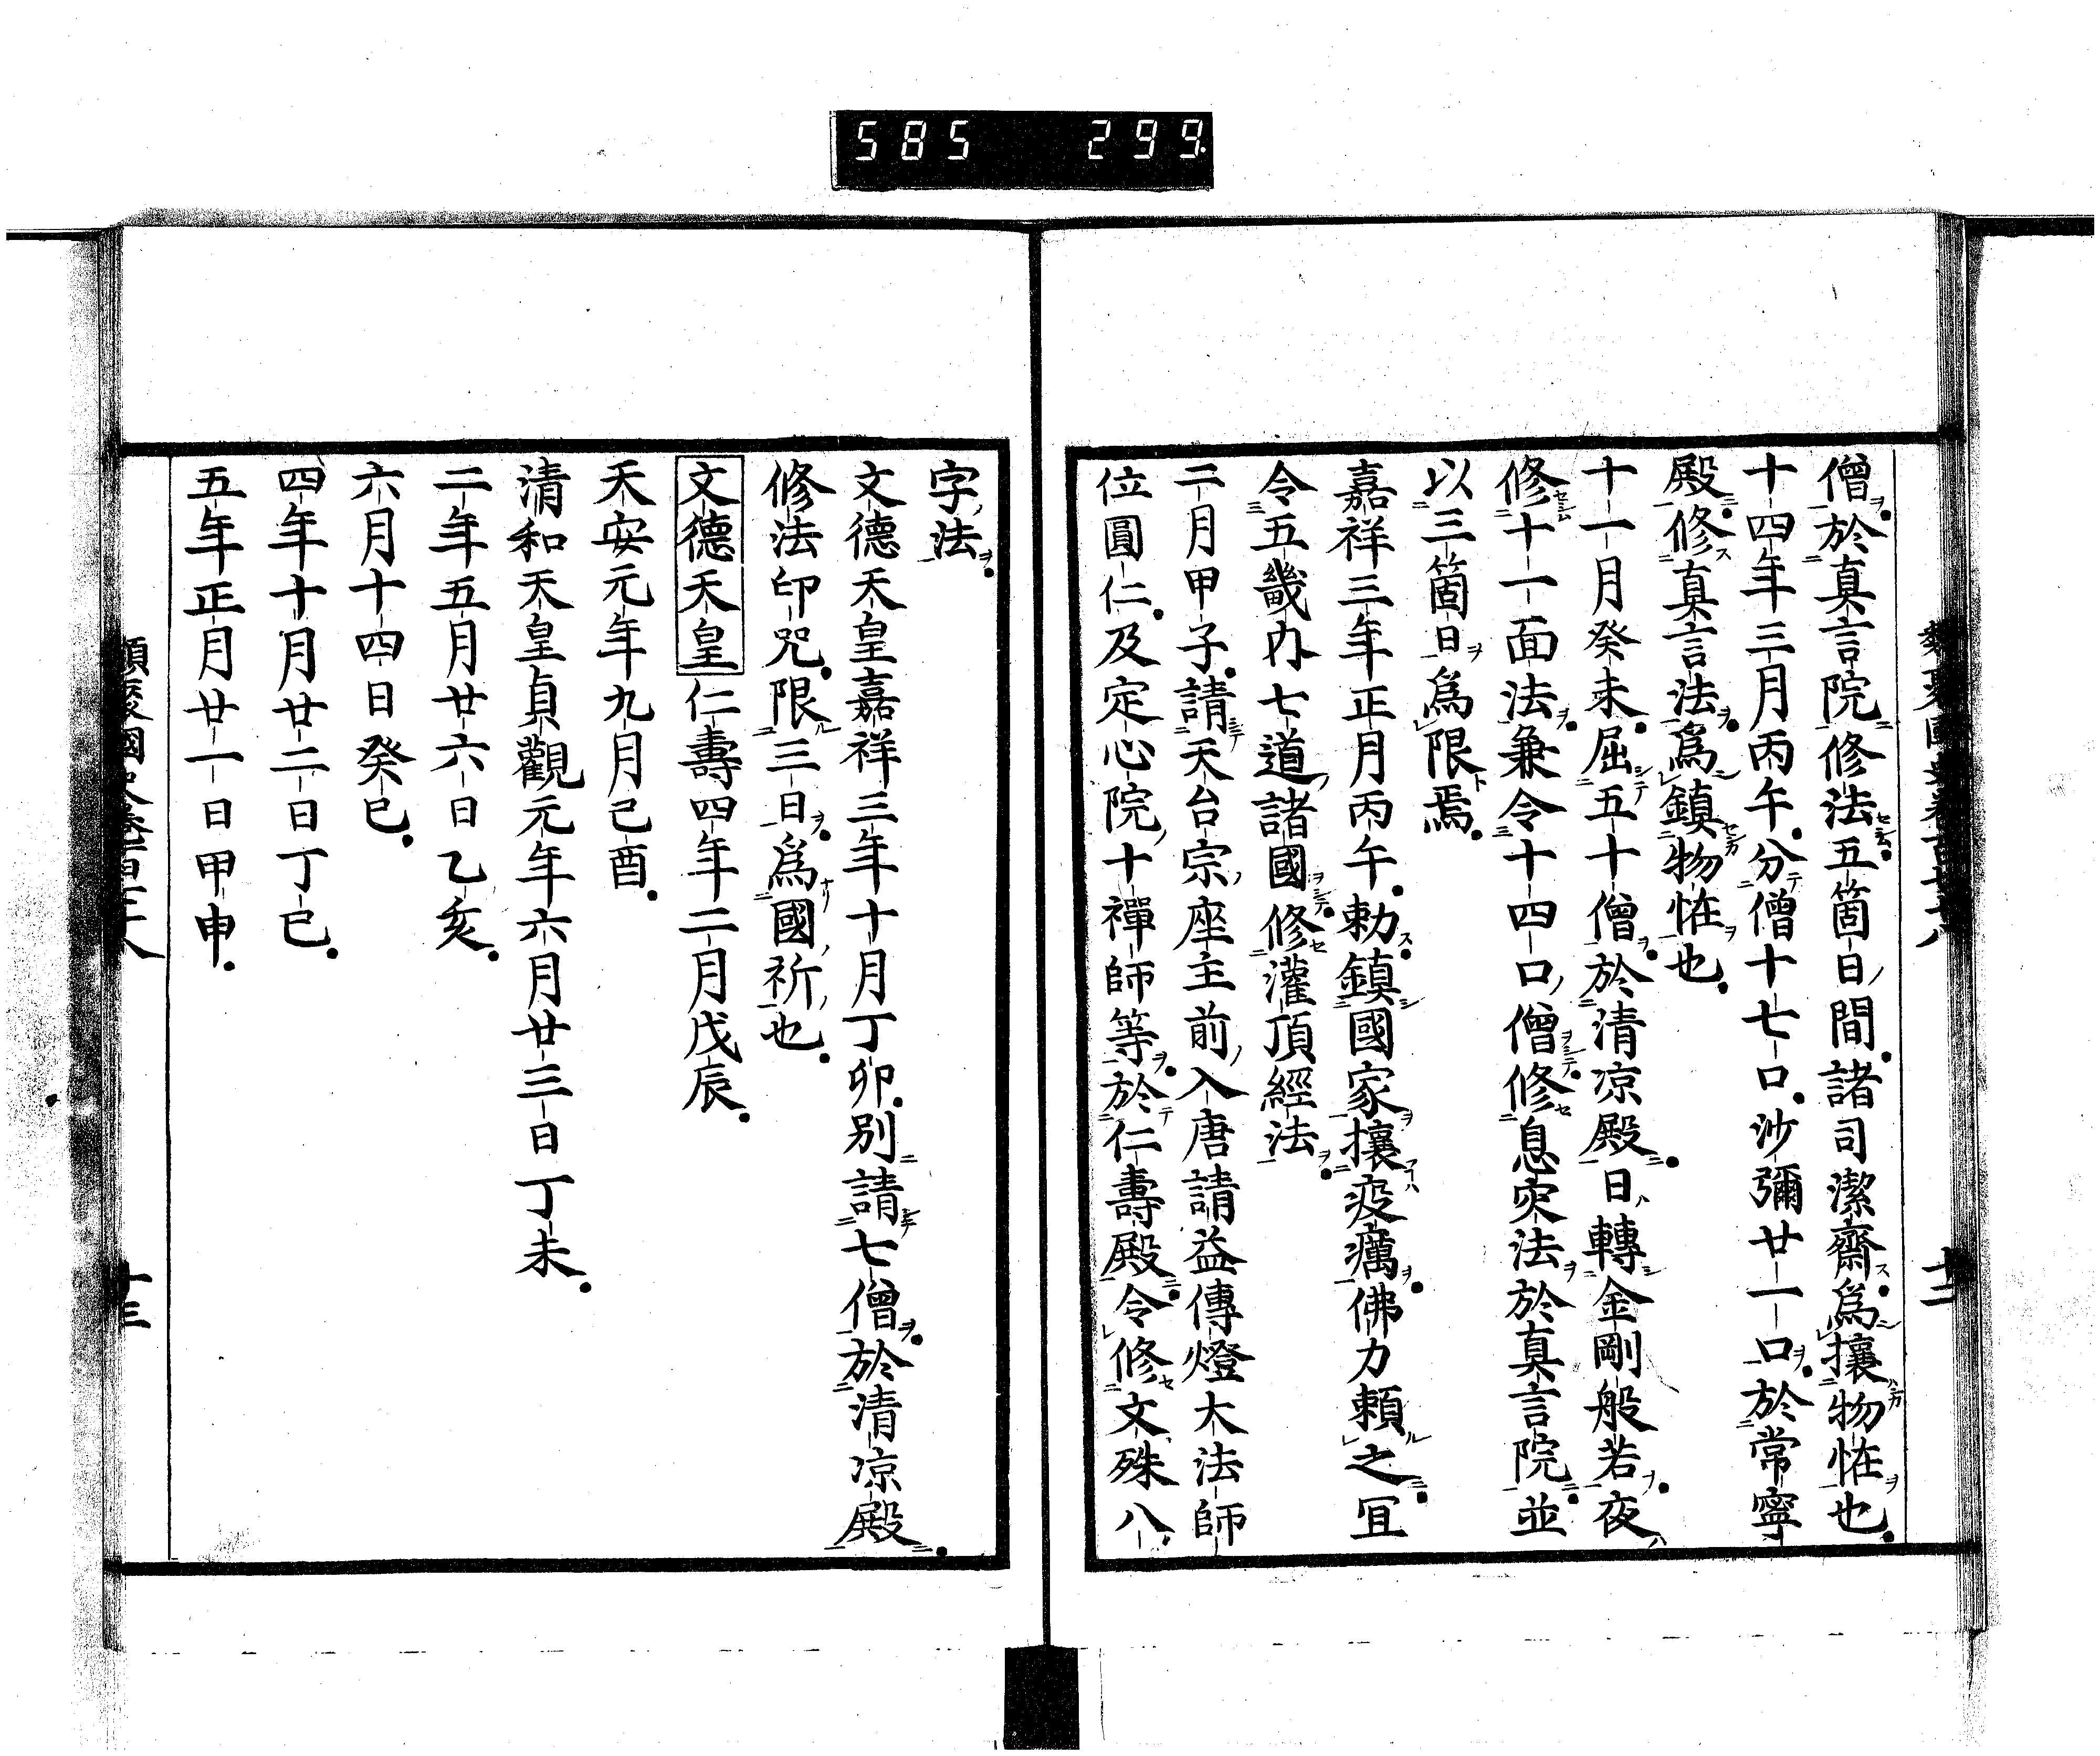 585 299
僧於真言院修法五箇日間諸司潔齋爲攘物恠也
十四年三月丙午分僧十七口沙彌廿一口於常寧
殿修真言法爲鎮物恠也
十一月癸未屈五十僧於清凉殿日轉金剛般若夜
修十一面法兼令十四口僧修息灾法於真言院並
以三箇日爲限焉
嘉祥三年正月丙午勅鎮國家攘疫癘佛力頼之冝
令五畿内七道諸國修灌頂經法
二月甲子請天台宗座主前入唐請益傳燈大法師
位圓仁及定心院十禪師等於仁壽殿令修文殊八
字法
文德天皇嘉祥三年十月丁卯別請七僧於清凉殿
修法印咒限三日爲國祈也
文德天皇仁壽四年二月戊辰
天安元年九月己酉
清和天皇貞觀元年六月廿三日丁未
二年五月廿六日乙亥
六月十四日癸巳
四年十月廿二日丁巳
五年正月廿一日甲申
十三